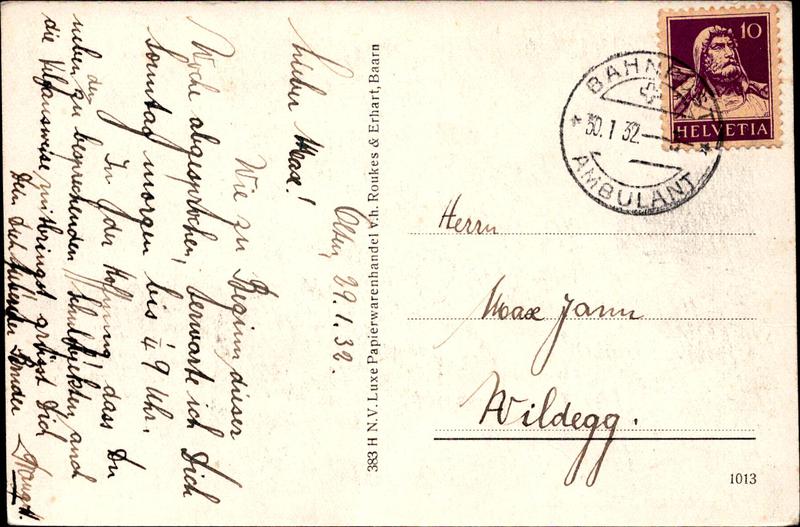 Olten, 29.1.32.
Lieber Max!
Wie zu Beginn dieser
Woche abgesprochen, erwarte ich Dich
Sonntag morgen bis ¼9 Uhr.
In der Hoffnung, dass Du
neben den zu besprechenden Schulobjekten auch
die mitbringst grüsst Dich
Dein Dich liebender Bruder
383 H N.V. Luxe Papierwarenhandel v.h. Roukes & Erhart, Baarn
10
HELVETIA
BAHNPOST
30.1.32.
AMBULANT
Herrn
Max Jann
Wildegg.
1013